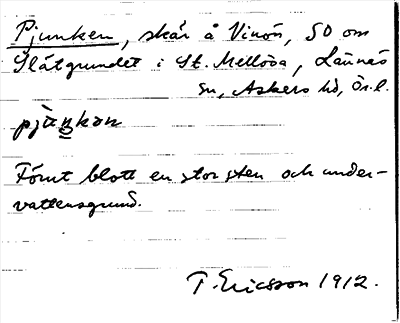 Pjunken, skär å Vinön, SO om
Slätgrundet i St. Mellösa, Lännäs
sn, Askers hd, Ör. l.
pjuŋkən
Förut blott en stor sten och under-
vattensgrund.
T. Ericsson 1912.